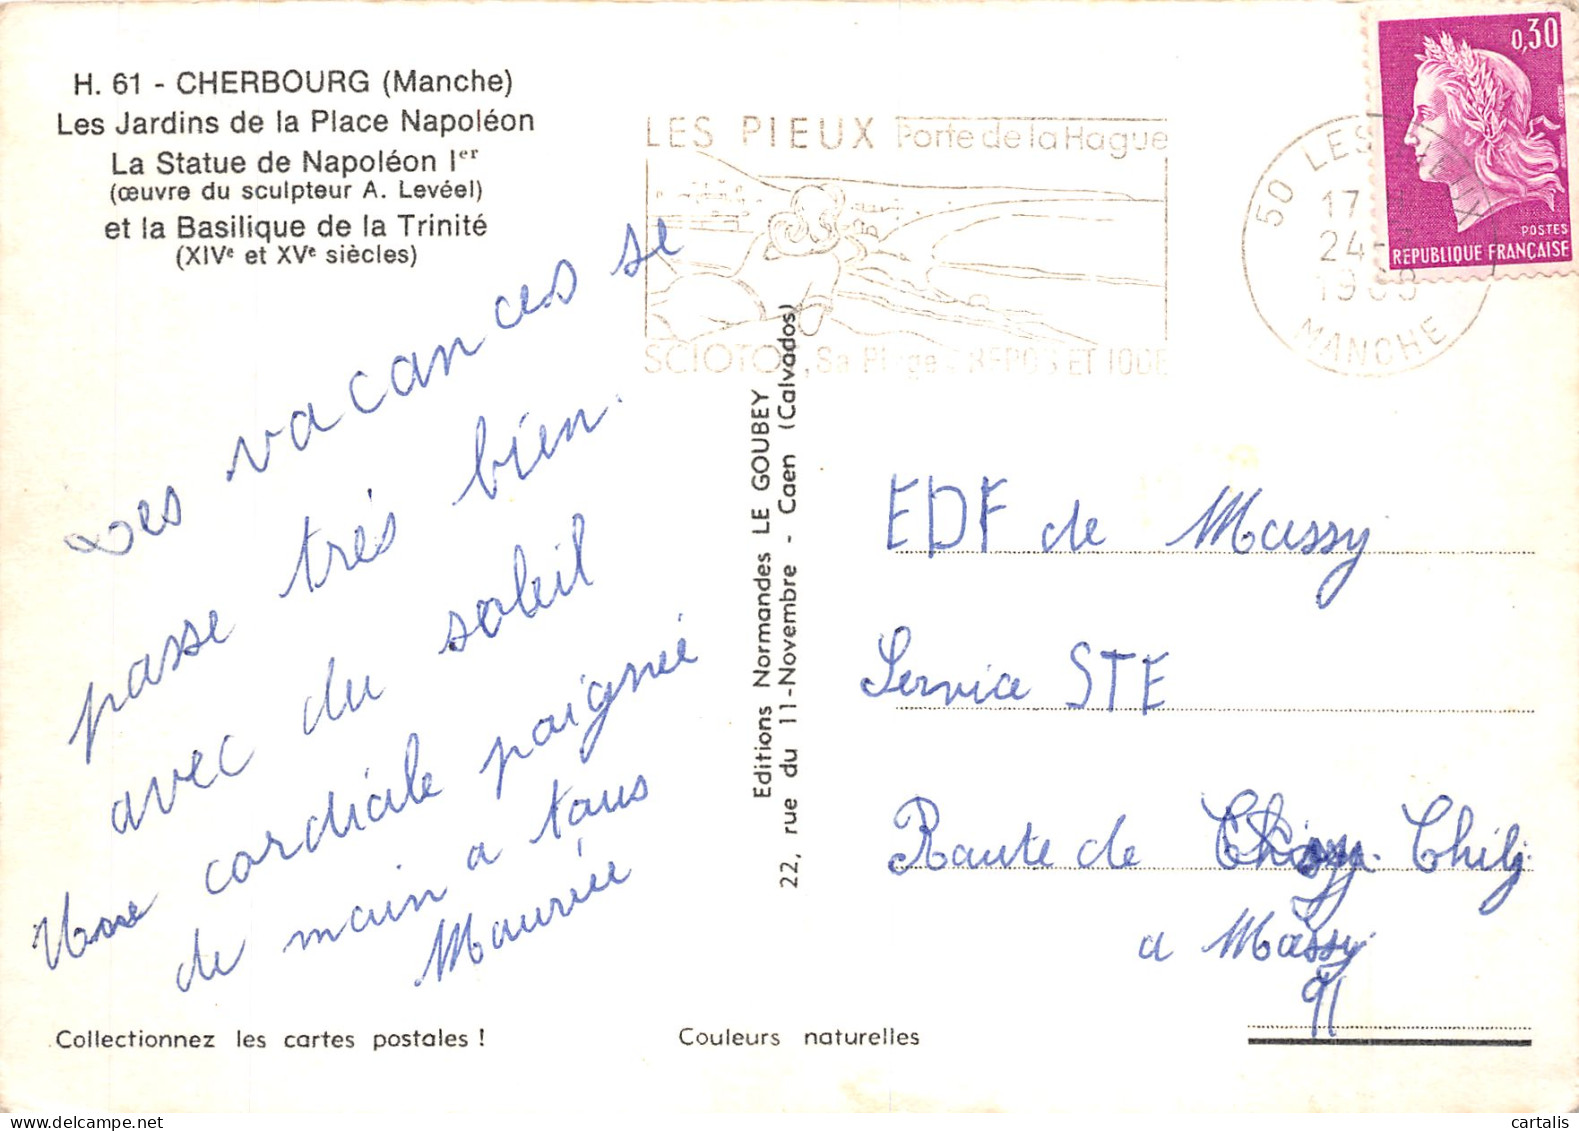 H. 61 - CHERBOURG (Manche)
Les Jardins de la Place Napoléon
La Statue de Napoléon Ier
(œuvre du sculpteur A. Levéel)
et la Basilique de la Trinité
(XIVe et XVe siècles)
LES PIEUX Porte de la Hague
SCIOTOT, Sa Plage : REPOS ET IODE
50 LES PIEUX
17
24-
19
MANCHE
0,30
POSTES
REPUBLIQUE FRANÇAISE
Les vacances se
passe très bien.
avec du soleil
Une cordiale paignée
de main a tous
Editions Normandes LE GOUBEY
22, rue du 11-Novembre - Caen (Calvados)
EDF de Massy
Service STE
Route de Chily
a Massy
91
Collectionnez les cartes postales !
Couleurs naturelles
cartalis
www.delcampe.net